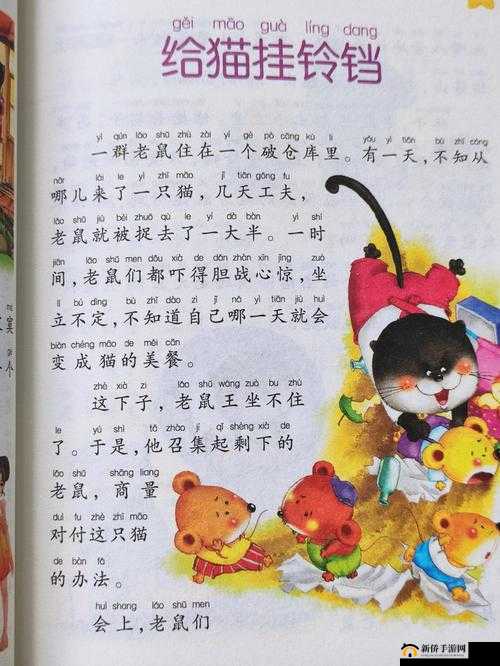 gěi māo guà líng dang
给猫挂铃铛
yì qún lǎo shǔ zhù zài yí gè pò cāng kù lǐ yǒu yì tiān bù zhī cóng
一群老鼠住在一个破仓库里。有一天，不知从
nǎr lái le yì zhī māo jǐ tiān gōng fu
哪儿来了一只猫，几天工夫，
lǎo shǔ jiù bèi zhuō qù le yí dà bàn yì shí
老鼠就被捉去了一大半。一时
jiān lǎo shǔ men dōu xià de dǎn zhàn xīn jīng zuò
间，老鼠们都吓得胆战心惊，坐
lì bú dìng bù zhī dào zì jǐ nǎ yì tiān jiù huì
立不定，不知道自己哪一天就会
biàn chéng māo de měi cān
变成猫的美餐。
zhè xià zi lǎo shǔ wáng zuò bu zhù
这下子，老鼠王坐不住
le yú shì tā zhào jí qǐ shèng xià de
了。于是，他召集起剩下的
lǎo shǔ shāng liang
老鼠，商量
duì fu zhè zhī māo
对付这只猫
de bàn fǎ
的办法。
huì shang lǎo shǔ men
会上，老鼠们
新侨手游网